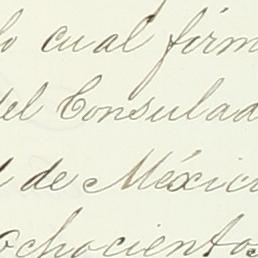 lo cual firm
del Consulad
l de México
ochocientos